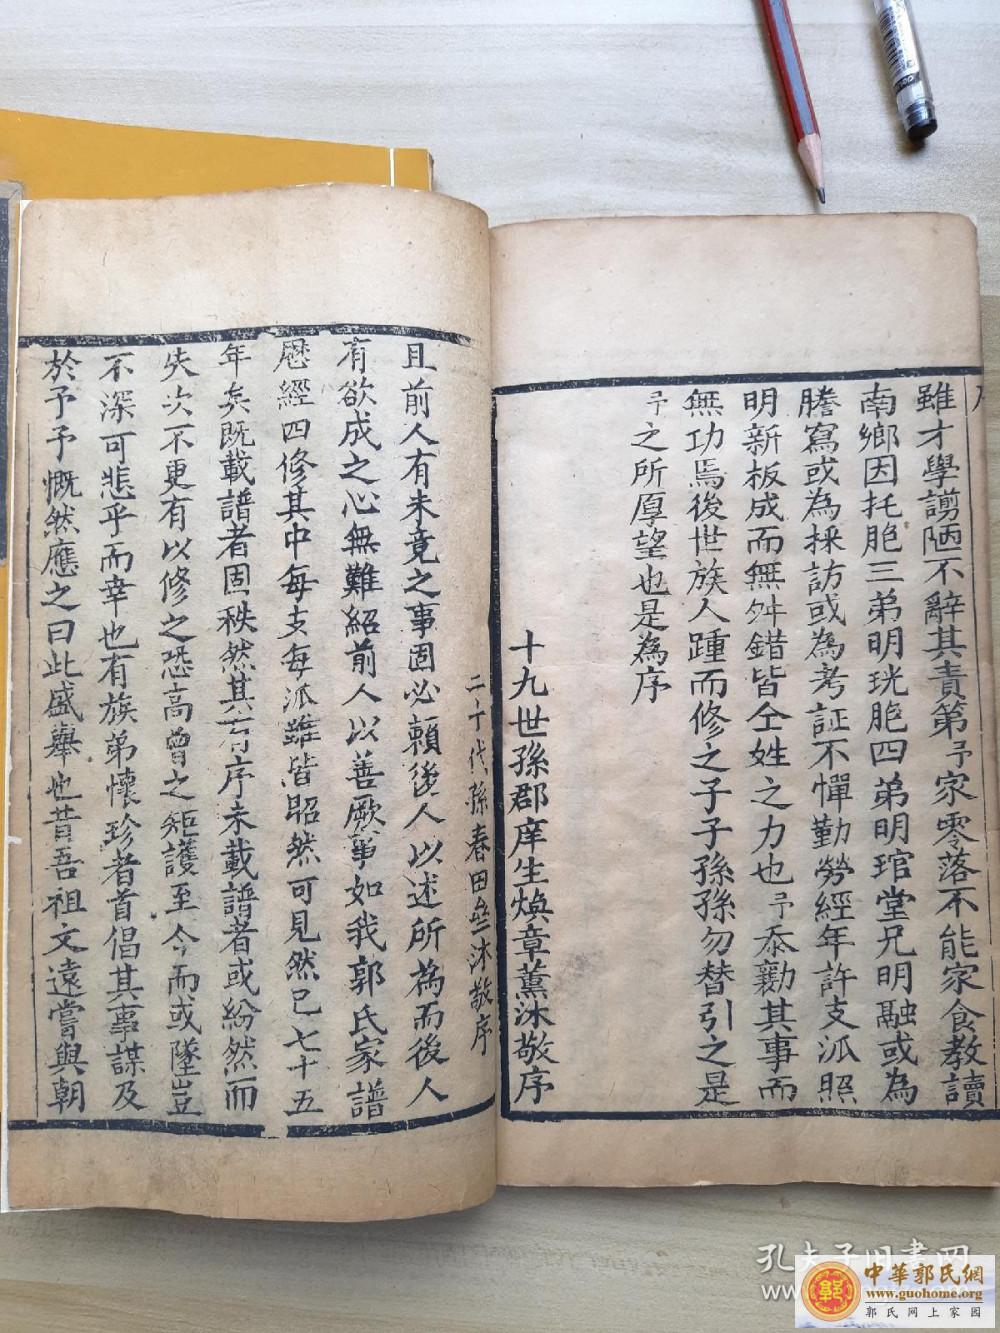 雖才學譾陋不辭其責第予家零落不能家食教讀
南鄉因托胞三弟明珖胞四弟明琯堂兄明融或為
謄寫或為採訪或為考証不憚勤勞經年許支派照
明新板成而無舛錯皆仝姓之力也予忝勷其事而
無功焉後世族人踵而修之子子孫孫勿替引之是
予之所厚望也是為序
十九世孫郡庠生煥章薰沐敬序
二十代孫春田壘沐敬序
且前人有未竟之事固必賴後人以述所為而後人
有欲成之心無難紹前人以善厥事如我郭氏家譜
歷經四修其中每支每派雖皆昭然可見然已七十五
年矣既載譜者固秩然其有序未載譜者或紛然而
失次不更有以修之恐高曾之矩護至今而或墜豈
不深可悲乎而幸也有族弟懷珍者首倡其事謀及
於予予慨然應之曰此盛舉也昔吾祖文遠嘗與朝
孔夫子旧書网
中華郭氏網
www.guohome.org
郭氏网上家园